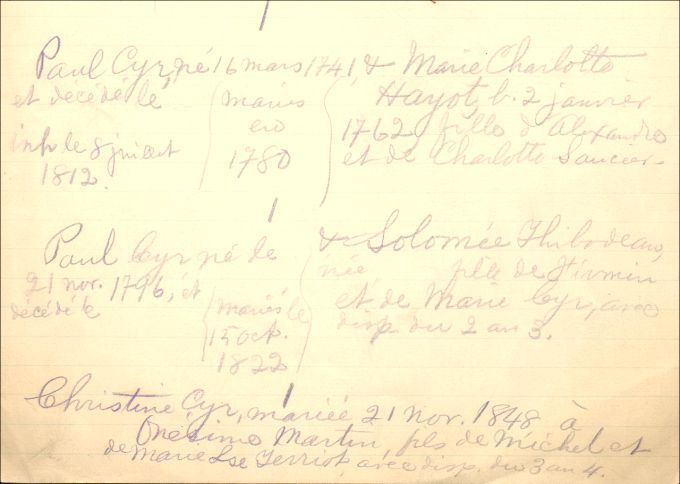 Paul Cyr, né 16 mars 1741, & Marie Charlotte
et décédé le
inh le 8 juillet
1812.
mariés
en
1780
Hayot, b. 2 janvier
1762 fille d'Alexandre
et de Charlotte Saucier.
Paul Cyr né le
21 nov. 1796, et
décédé le
mariés le
15 oct.
1822
& Solomée Thibodeau,
née fille de Firmin
et de Marie Cyr, avec
disp. du 2 au 3.
Christine Cyr, mariée 21 nov. 1848 à
Onésime Martin, fils de Michel et
de Marie Lse Terriot, avec disp. du 3 au 4.